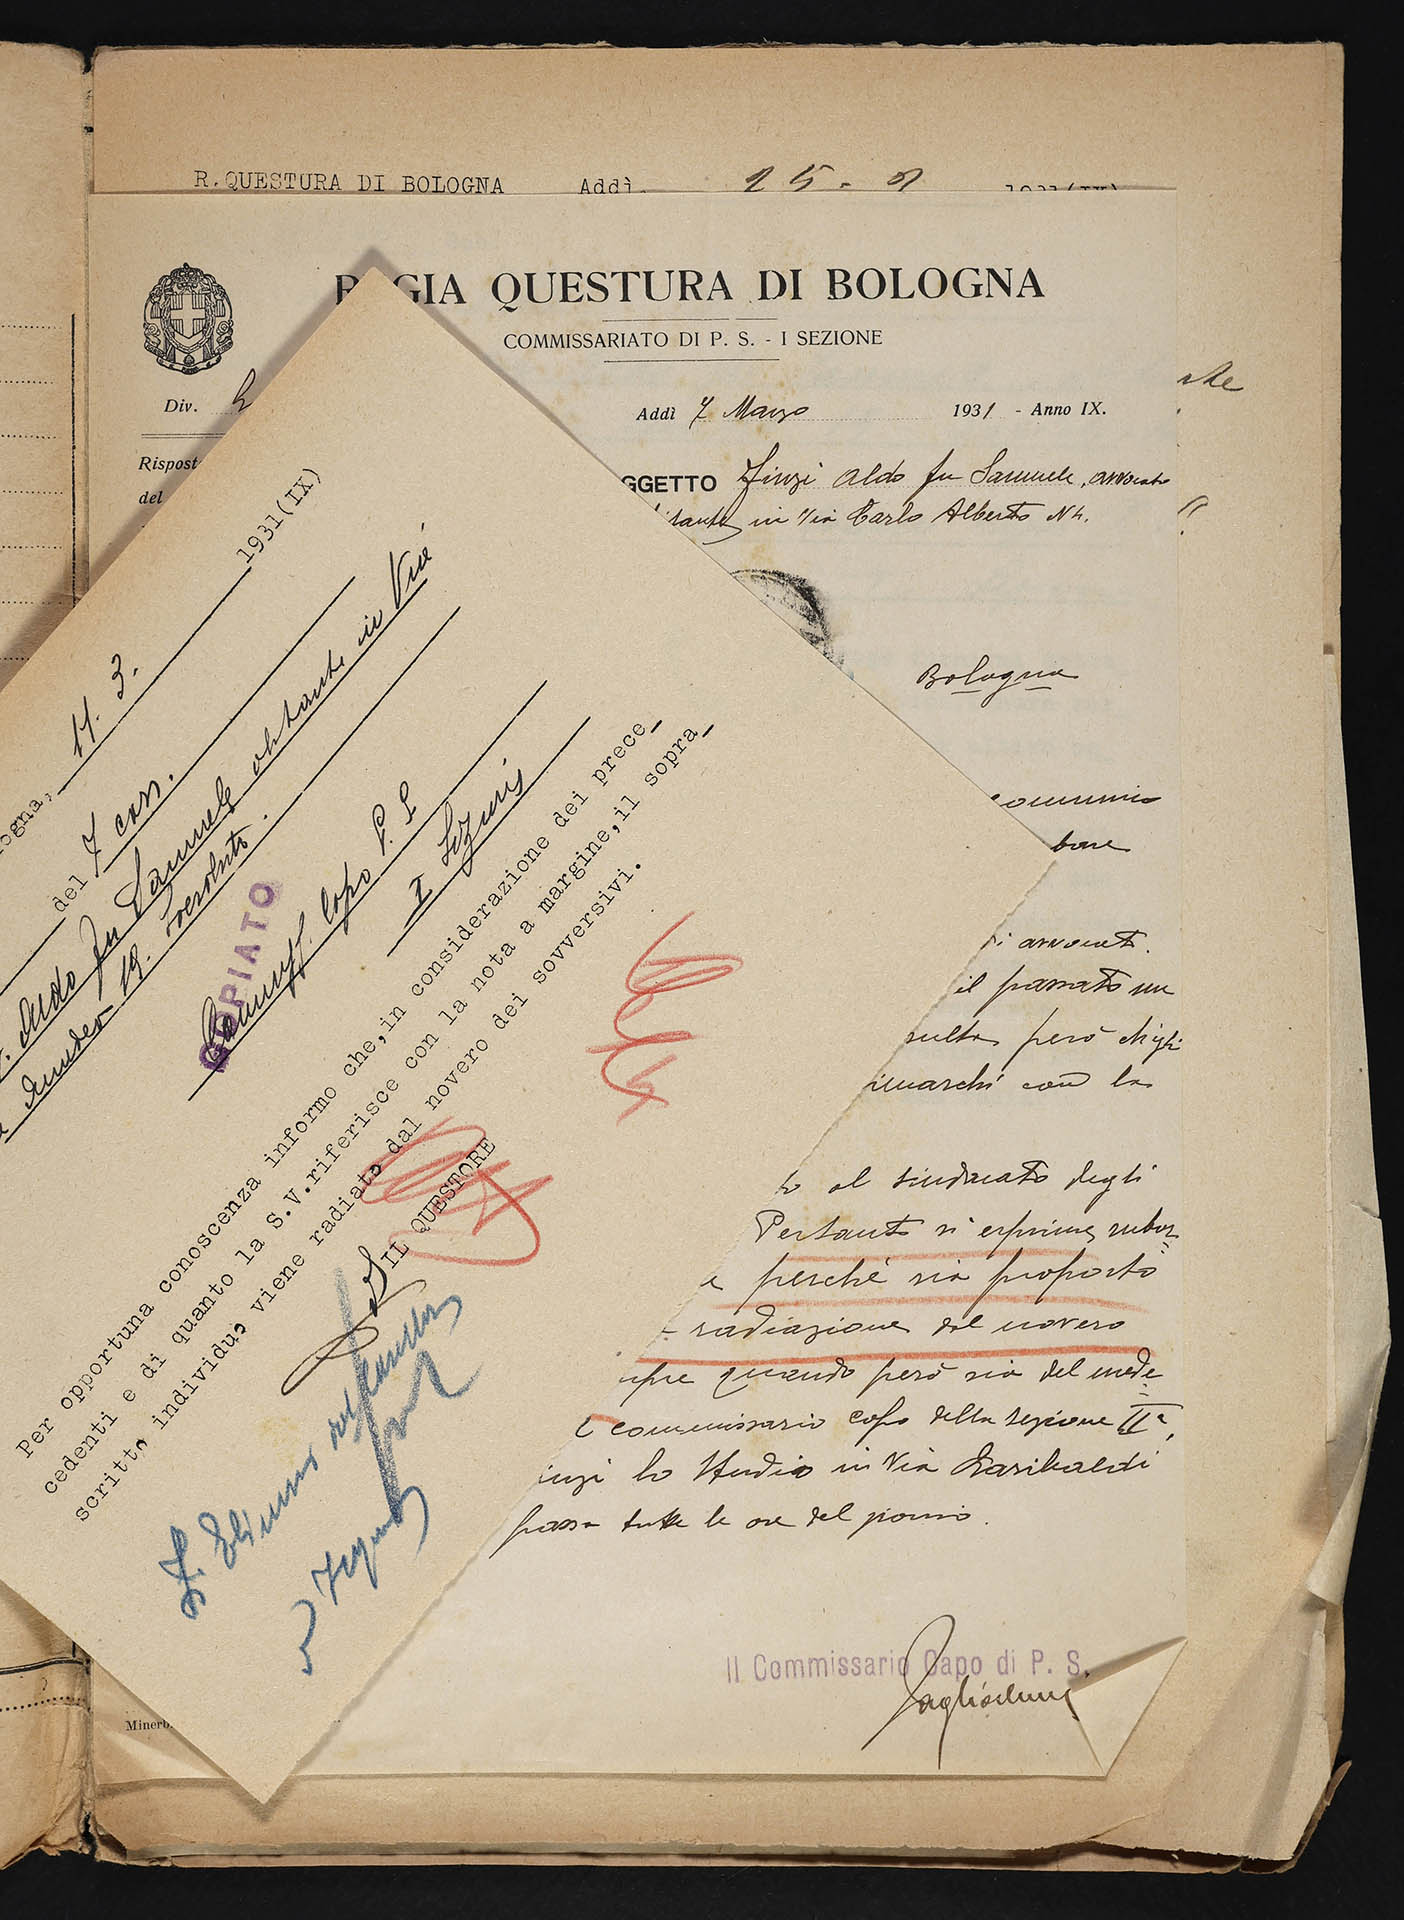 R. QUESTURA DI BOLOGNA Addì. 1931(IX)
REGIA QUESTURA DI BOLOGNA
COMMISSARIATO DI P. S. - I SEZIONE
Div.
Addì 7 Marzo 1931 - Anno IX.
Rispost
del
GGETTO Finzi Aldo fu Samuele, avvocato
bitante in Via Carlo Alberto N 4.
Bologna
bone
i avvocati.
il passato un
sulta però ch'egli
rimarchi con la
to al sindacato degli
Pertanto si esprime subor
e perchè sia proposto
radiazione dal novero
quando però sia del mede
l commissario capo della sezione IIª,
inzi lo studio in Via Garibaldi
passa tutte le ore del giorno.
Il Commissario Capo di P. S.
Minerb
ogna, 11. 3. 1931(IX)
del 7 corr.
Aldo fu Samuele abitante in Via
19.
COPIATO
Commiss. Capo P. S
I Sezione
Per opportuna conoscenza informo che,in considerazione dei prece_
cedenti e di quanto la S.V.riferisce con la nota a margine,il sopra_
scritto individuo viene radiato dal novero dei sovversivi.
IL QUESTORE